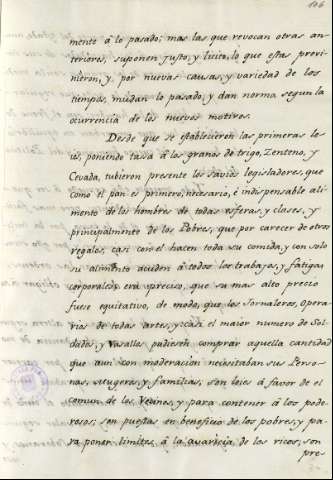 106
mento â lo pasado; mas las que revocan otras an-
teriores, suponen justo, y licito, lo que estas previ-
nieron, y por nuevas causas, y variedad de los
tiempos, mudan lo pasado, y dan norma segun la
ocurrencia de los nuevos motivos.
Desde que se establecieron las primeras le-
ies, poniendo tasa â los granos de trigo, Zenteno, y
Cevada, tubieron presente los savios legisladores, que
como el pan es primero, necesario, è indispensable ali-
mento de los hombres de todas esferas, y clases, y
principalmente de los Pobres, que por carecer de otros
regalos, casi con el hacen toda su comida, y con solo
su alimento acuden â todos los trabajos, y fatigas
corporales, era preciso, que su mas alto precio
fuese equitativo, de modo, que los Jornaleros, Opera-
rios de todas artes, y casi el maior numero de Sol-
dados, y Vasallos pudiesen comprar aquella cantidad
que aun con moderacion necesitaban sus Perso-
nas, mugeres, y familias, son leies â favor de el
comun de los Vecinos, y para contener â los pode-
rosos; son puestas en beneficio de los pobres, y pa-
ra poner limites â la avaricia de los ricos, son
pre-